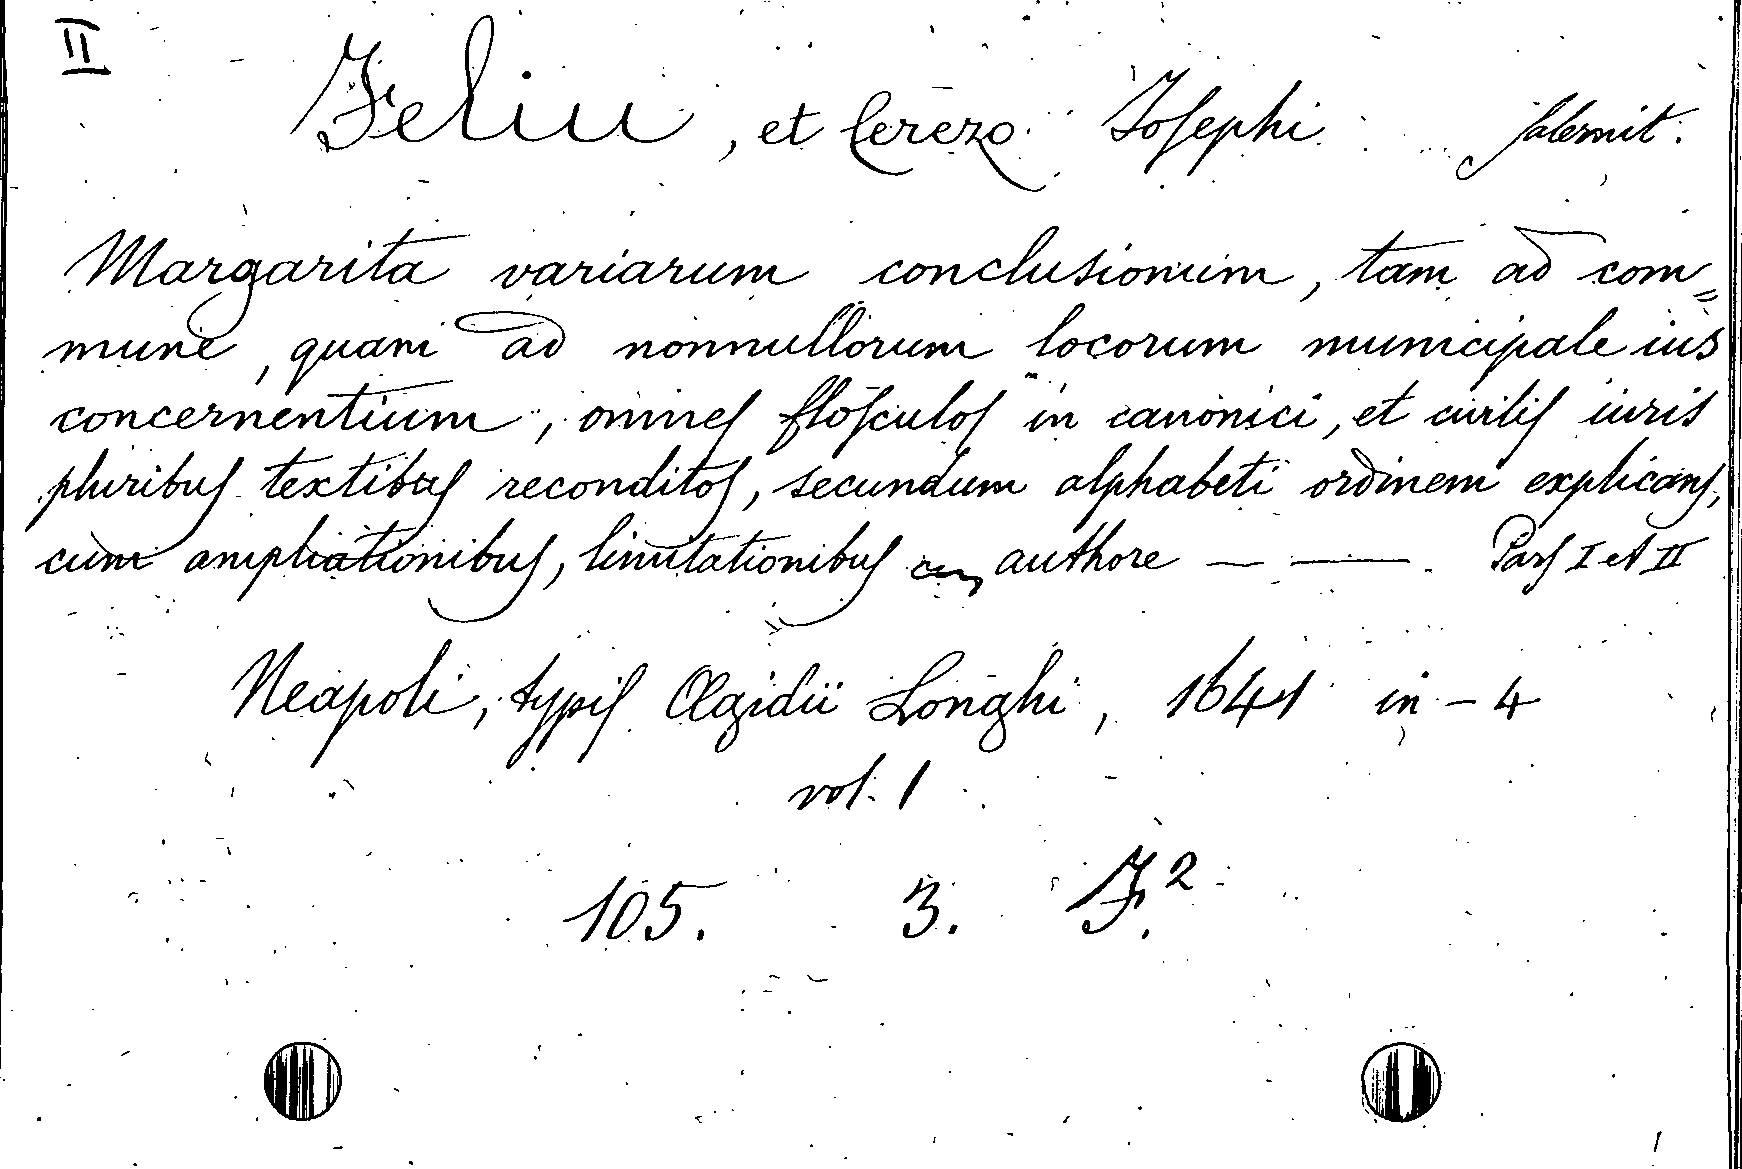 II
Feliu, et Cerezo Josephi salernit.
Margarita variarum conclusionum, tam ad com=
mune, quam ad nonnullorum locorum municipale ius
concernentium, omnes flosculos in canonici, et civilis iuris
pluribus textibus reconditos, secundum alphabeti ordinem explicans,
cum ampliationibus, limitationibus authore — —. Pars I et II
Neapoli, typis Ægidii Longhi, 1641 in-4
vol. 1
105. 3. F.²